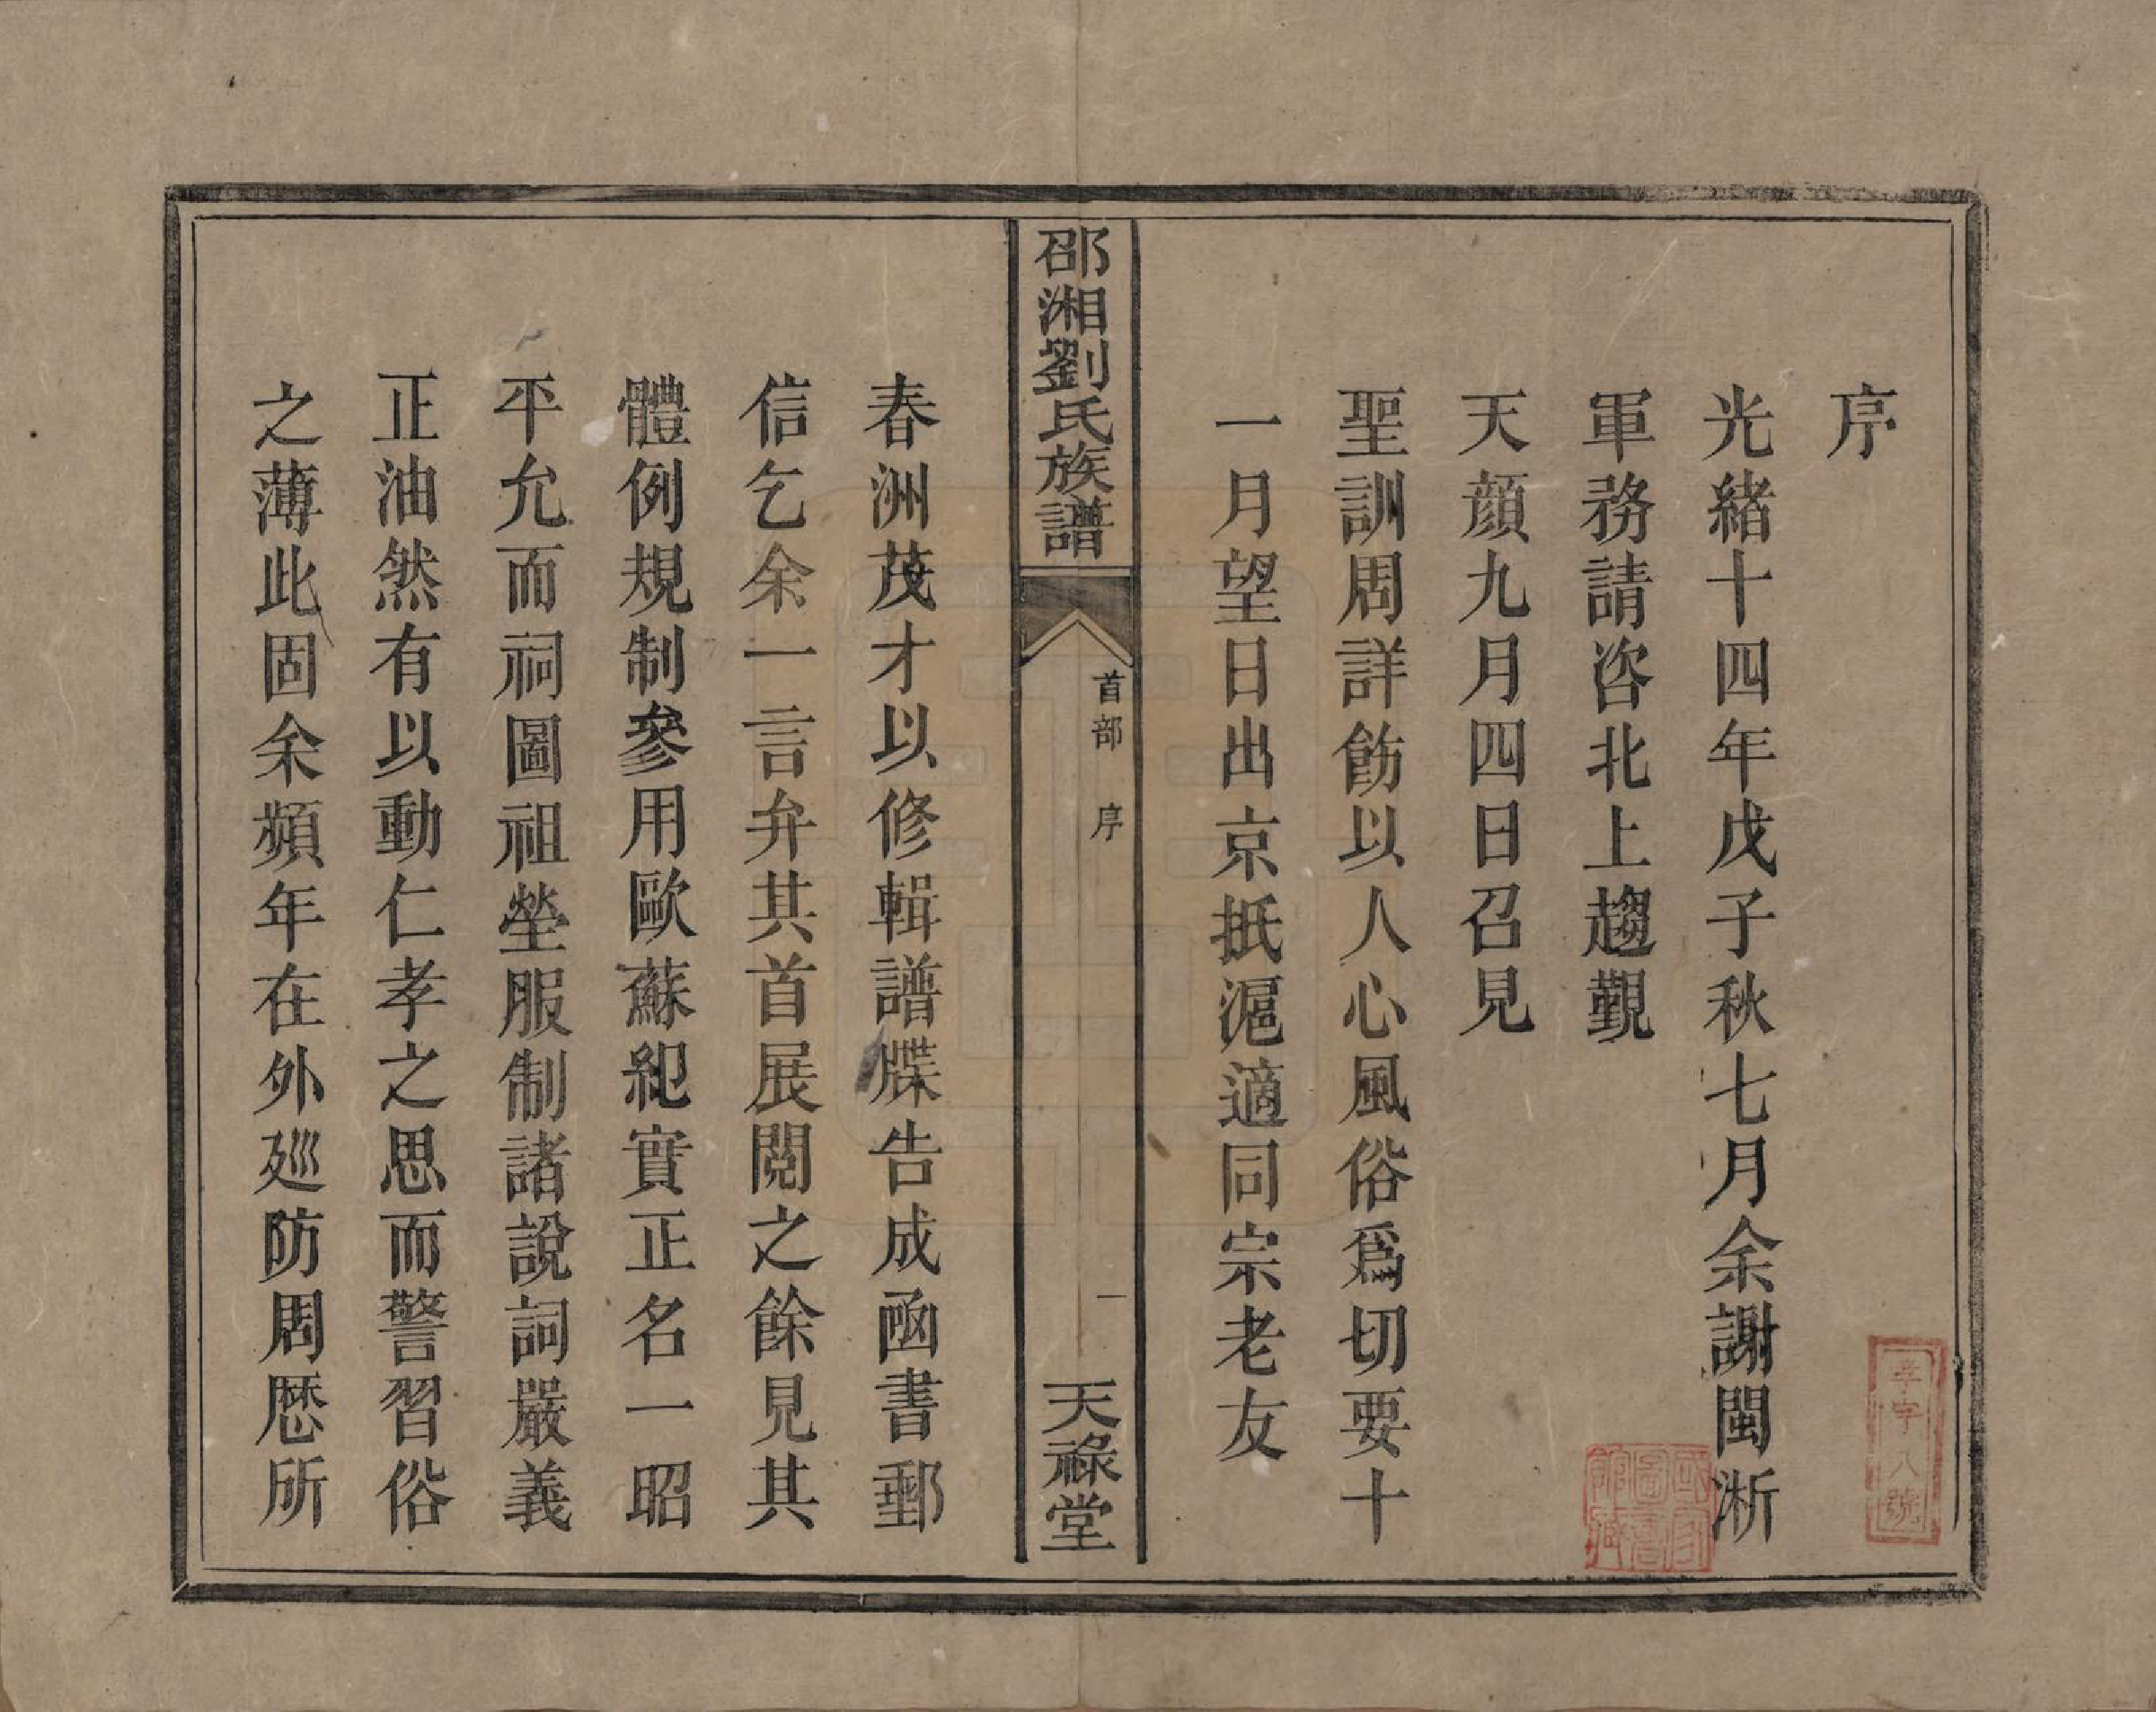 序
光緒十四年戊子秋七月余謝閩淅
軍務請咨北上趨覲
天顔九月四日召見
聖訓周詳飭以人心風俗爲切要十
一月望日出京抵滬適同宗老友
邵湘劉氏族譜
首部 序
一
天祿堂
春洲茂才以修輯譜牒告成函書郵
信乞余一言弁其首展閲之餘見其
體例規制參用歐蘇紀實正名一昭
平允而祠圖祖塋服制諸説詞嚴義
正油然有以動仁孝之思而警習俗
之薄此固余頻年在外廵防周歷所
辛字八號
國家圖書館藏